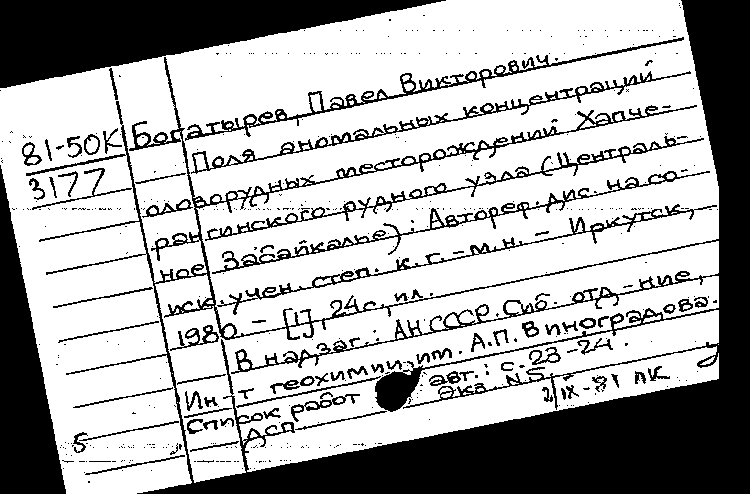 81-50К
3177
Богатырев, Павел Викторович.
Поля аномальных концентраций
оловорудных месторождений Хапче-
рангинского рудного узла (Централь-
ное Забайкалье): Автореф. дис. на со-
иск. учен. степ. к.г.-м.н. - Иркутск,
1980. - [1], 24 с, ил.
В надзаг.: АН СССР. Сиб. отд-ние,
Ин-т геохимии им. А.П. Виноградова.
Список работ авт.: с. 23-24.
ДСП Экз. N5.
2/IX-81 ПК
5